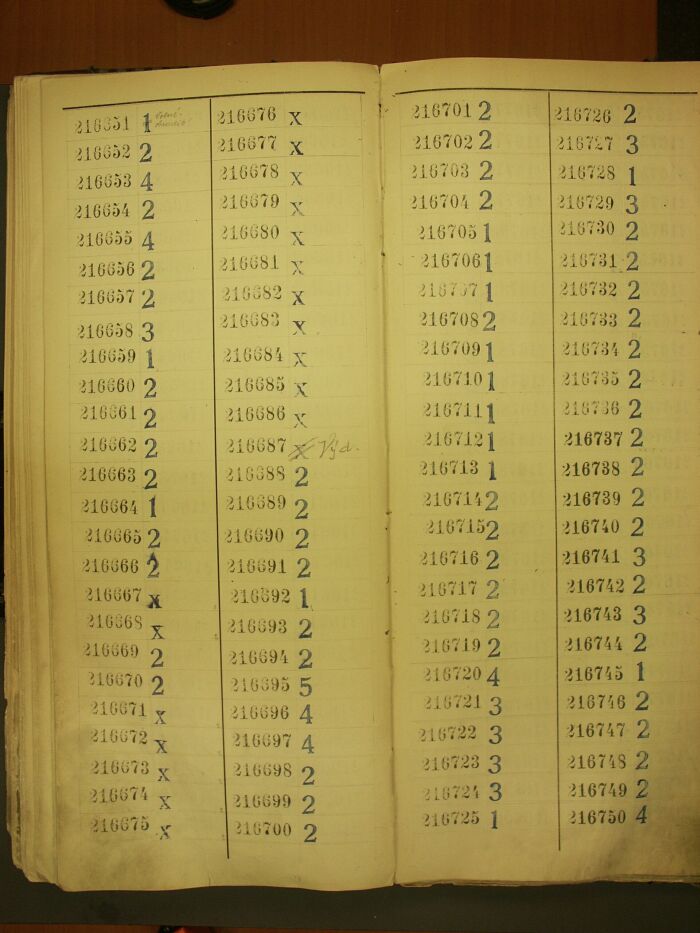 216651 1
216652 2
216653 4
216654 2
216655 4
216656 2
216657 2
216658 3
216659 1
216660 2
216661 2
216662 2
216663 2
216664 1
216665 2
216666 2
216667 x
216668 x
216669 2
216670 2
216671 x
216672 x
216673 x
216674 x
216675 x
216676 x
216677 x
216678 x
216679 x
216680 x
216681 x
216682 x
216683 x
216684 x
216685 x
216686 x
216687 x Výd.
216688 2
216689 2
216690 2
216691 2
216692 1
216693 2
216694 2
216695 5
216696 4
216697 4
216698 2
216699 2
216700 2
216701 2
216702 2
216703 2
216704 2
216705 1
216706 1
216707 1
216708 2
216709 1
216710 1
216711 1
216712 1
216713 1
216714 2
216715 2
216716 2
216717 2
216718 2
216719 2
216720 4
216721 3
216722 3
216723 3
216724 3
216725 1
216726 2
216727 3
216728 1
216729 3
216730 2
216731 2
216732 2
216733 2
216734 2
216735 2
216736 2
216737 2
216738 2
216739 2
216740 2
216741 3
216742 2
216743 3
216744 2
216745 1
216746 2
216747 2
216748 2
216749 2
216750 4